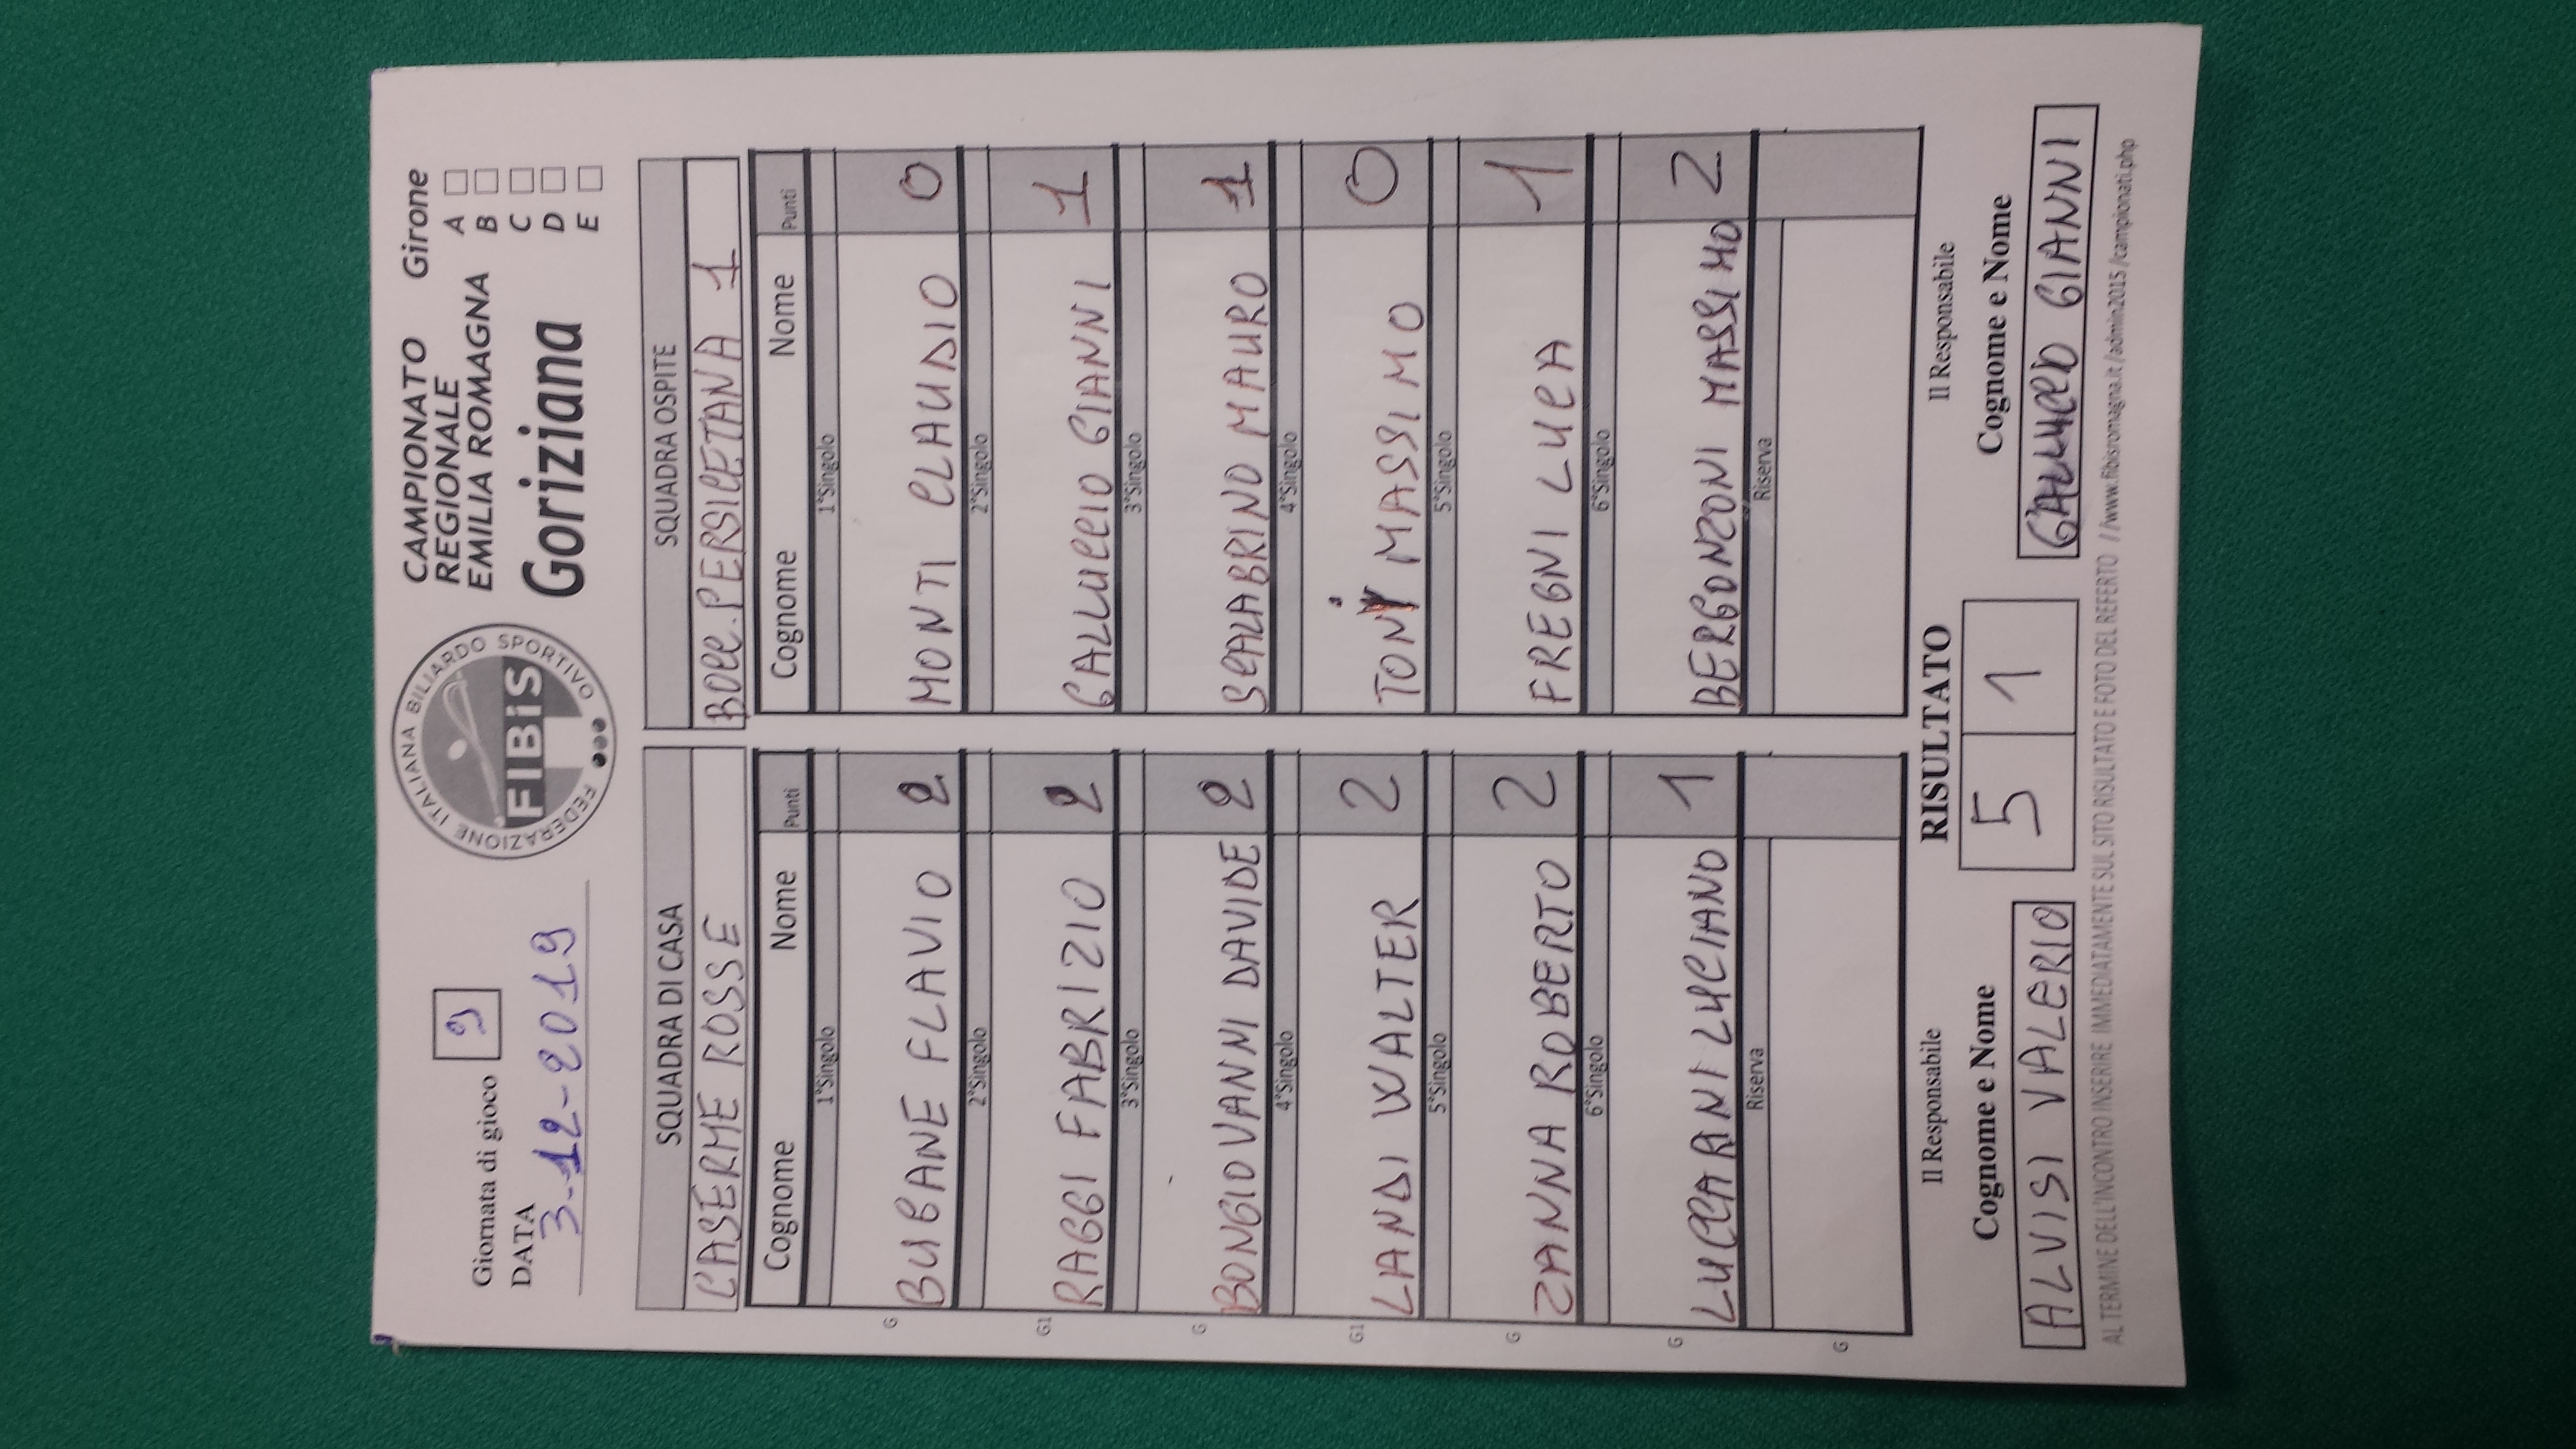 Giornata di gioco 9
DATA
3-12-2019
FEDERAZIONE ITALIANA BILIARDO SPORTIVO
FIBiS
CAMPIONATO
REGIONALE
EMILIA ROMAGNA
Goriziana
Girone
A
B
C
D
E
SQUADRA DI CASA SQUADRA OSPITE
CASERME ROSSE BOCC. PERSICETANA 1
Cognome Nome Punti Cognome Nome Punti
1°Singolo 1°Singolo
G BUBANE FLAVIO 2 MONTI CLAUDIO 0
2°Singolo 2°Singolo
G1 RAGGI FABRIZIO 2 GALLUCCIO GIANNI 1
3°Singolo 3°Singolo
G BONGIOVANNI DAVIDE 2 SCALABRINO MAURO 1
4°Singolo 4°Singolo
G1 LANDI WALTER 2 TONI MASSIMO 0
5°Singolo 5°Singolo
G ZANNA ROBERTO 2 FREGNI LUCA 1
6°Singolo 6°Singolo
G LUCCARINI LUCIANO 1 BERGONZONI MASSIMO 2
Riserva Riserva
G
Il Responsabile RISULTATO Il Responsabile
Cognome e Nome 5 1 Cognome e Nome
ALVISI VALERIO GIANNI
AL TERMINE DELL'INCONTRO INSERIRE IMMEDIATAMENTE SUL SITO RISULTATO E FOTO DEL REFERTO //www.fibisromagna.it/admin2015/campionati.php